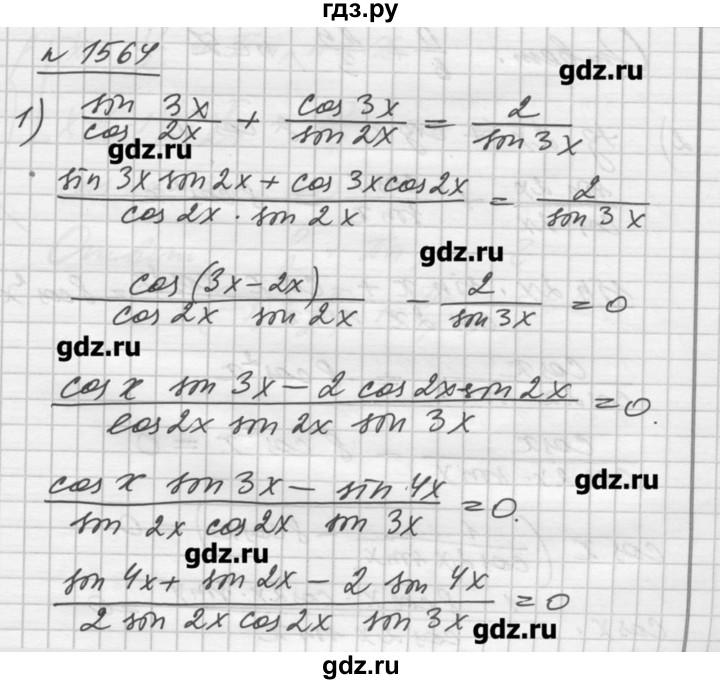 гдз.ру
№ 1564
1) sin 3x / cos 2x + cos 3x / sin 2x = 2 / sin 3x
gdz.ru
sin 3x sin 2x + cos 3x cos 2x / cos 2x · sin 2x = 2 / sin 3x
gdz.ru
cos (3x – 2x) / cos 2x sin 2x – 2 / sin 3x = 0
gdz.ru
cos x sin 3x – 2 cos 2x sin 2x / cos 2x sin 2x sin 3x = 0.
gdz.ru
cos x sin 3x – sin 4x / sin 2x cos 2x sin 3x = 0.
gdz.ru
sin 4x + sin 2x – 2 sin 4x / 2 sin 2x cos 2x sin 3x = 0
gdz.ru
gdz.ru